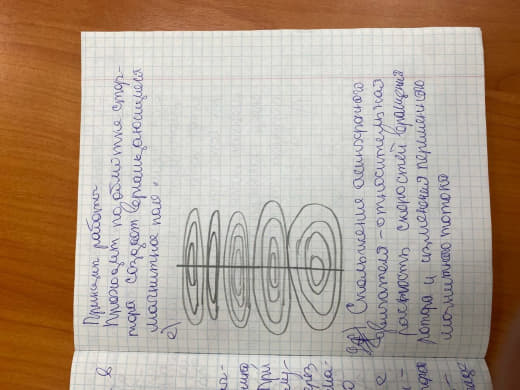 Принцип работы
Проходит по обмотке стор-
тора создает вращающиеся
магнитное поле.
е)
Скольжение асинхронного
двигателя - относительная
разность скоростей вращения
ротора и изменения переменного
магнитного потока
в